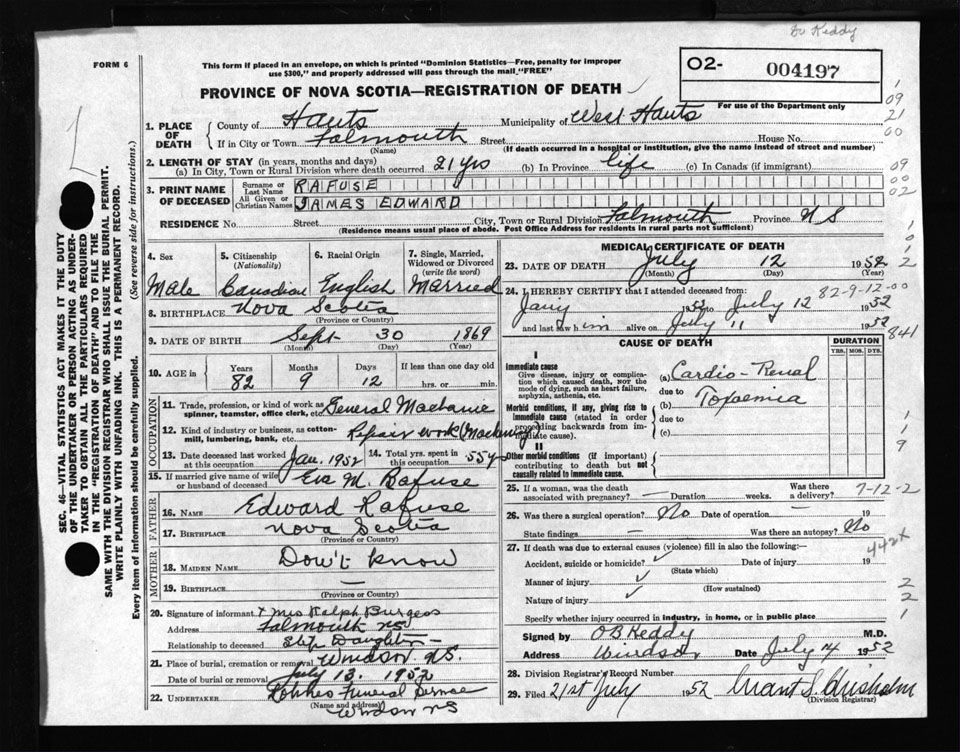 Dr Keddy
FORM 6
This form if placed in an envelope, on which is printed "Dominion Statistics—Free, penalty for improper
use $300," and properly addressed will pass through the mail "FREE"
O2- 004197
For use of the Department only
PROVINCE OF NOVA SCOTIA—REGISTRATION OF DEATH
1. PLACE OF DEATH County of Hants Municipality of West Hants
If in City or Town Falmouth Street House No.
(Name) (If death occurred in a hospital or institution, give the name instead of street and number)
2. LENGTH OF STAY (in years, months and days)
(a) In City, Town or Rural Division where death occurred 21 yrs (b) In Province life (c) In Canada (if immigrant)
3. PRINT NAME OF DECEASED Surname or Last Name RAFUSE
All Given or Christian Names JAMES EDWARD
RESIDENCE No. Street City, Town or Rural Division Falmouth Province N S
(Residence means usual place of abode. Post Office Address for residents in rural parts not sufficient)
4. Sex Male
5. Citizenship (Nationality) Canadian
6. Racial Origin English
7. Single, Married, Widowed or Divorced (write the word) Married
8. BIRTHPLACE Nova Scotia
(Province or Country)
9. DATE OF BIRTH Sept 30 1869
(Month) (Day) (Year)
10. AGE in Years 82 Months 9 Days 12 If less than one day old
hrs. or min.
OCCUPATION
11. Trade, profession, or kind of work as spinner, teamster, office clerk, etc. General Mechanic
12. Kind of industry or business, as cotton-mill, lumbering, bank, etc. Repair work
13. Date deceased last worked at this occupation Jan. 1952 14. Total yrs. spent in this occupation 55 yrs
15. If married give name of wife or husband of deceased Eva M. Rafuse
FATHER
16. NAME Edward Rafuse
17. BIRTHPLACE Nova Scotia
(Province or Country)
MOTHER
18. MAIDEN NAME Don't know
19. BIRTHPLACE —
(Province or Country)
20. Signature of informant x Mrs Ralph Burgess
Address Falmouth NS
Relationship to deceased Step Daughter
21. Place of burial, cremation or removal Windsor, N.S.
Date of burial or removal July 13. 1952
22. UNDERTAKER Funeral Service
(Name and address) Windsor NS
MEDICAL CERTIFICATE OF DEATH
23. DATE OF DEATH July 12 1952
(Month) (Day) (Year)
24. I HEREBY CERTIFY that I attended deceased from:
82-9-12-00
1952 to July 12 1952
and last saw him alive on July 11 1952
841
CAUSE OF DEATH DURATION
YRS. MOS. DYS.
I
Immediate cause
Give disease, injury or complication which caused death, not the mode of dying, such as heart failure, asphyxia, asthenia, etc.
(a) Cardio-Renal
due to Toxaemia
(b)
Morbid conditions, if any, giving rise to immediate cause (stated in order proceeding backwards from immediate cause).
due to
(c)
II
Other morbid conditions (if important) contributing to death but not causally related to immediate cause.
25. If a woman, was the death associated with pregnancy? — Duration weeks. Was there a delivery?
7-12-2
26. Was there a surgical operation? No Date of operation — 19
State findings — Was there an autopsy? No
442x
27. If death was due to external causes (violence) fill in also the following:—
Accident, suicide or homicide? Date of injury 19
(State which)
Manner of injury
(How sustained)
Nature of injury
Specify whether injury occurred in industry, in home, or in public place
Signed by O B Keddy M.D.
Address Windsor Date July 14 1952
28. Division Registrar's Record Number
29. Filed 21st July 1952 Grant S. Chisholm
(Division Registrar)
SEC. 46—VITAL STATISTICS ACT MAKES IT THE DUTY
OF THE UNDERTAKER OR PERSON ACTING AS UNDERTAKER TO OBTAIN ALL THE PARTICULARS REQUIRED
IN THE "REGISTRATION OF DEATH" AND TO FILE THE
SAME WITH THE DIVISION REGISTRAR WHO SHALL ISSUE THE BURIAL PERMIT.
WRITE PLAINLY WITH UNFADING INK. THIS IS A PERMANENT RECORD.
Every item of information should be carefully supplied. (See reverse side for instructions.)
1
09
21
00
09
00
02
1
0
1
2
1
1
9
2
2
1